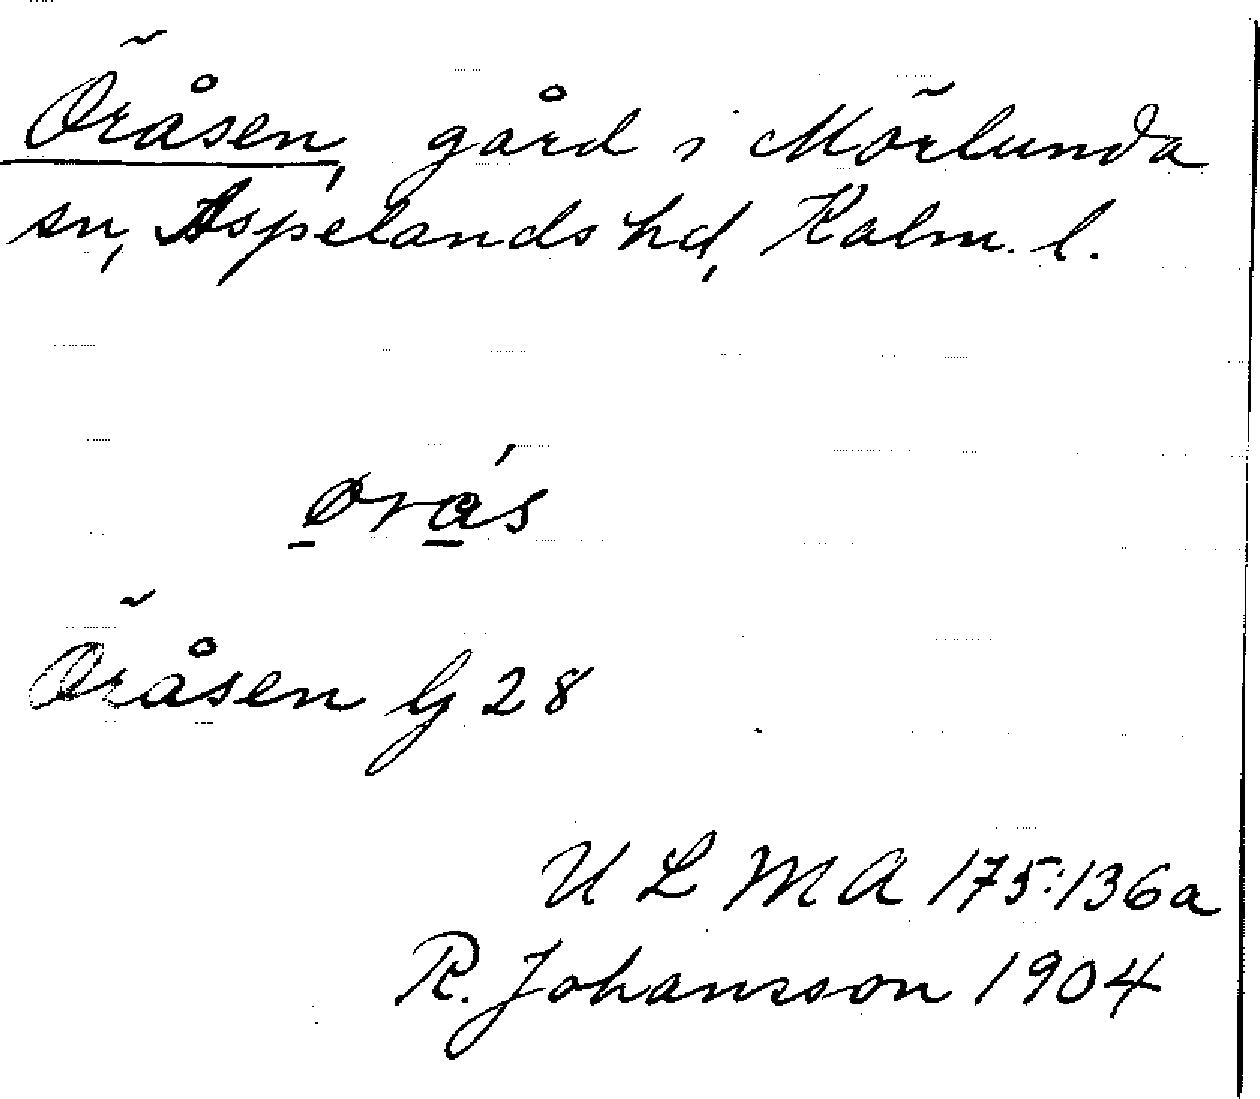 Öråsen, gård i Mörlunda
sn, Aspelands hd, Kalm. l.
ørás
Öråsen G 28
U L M A 175:136a
R. Johansson 1904